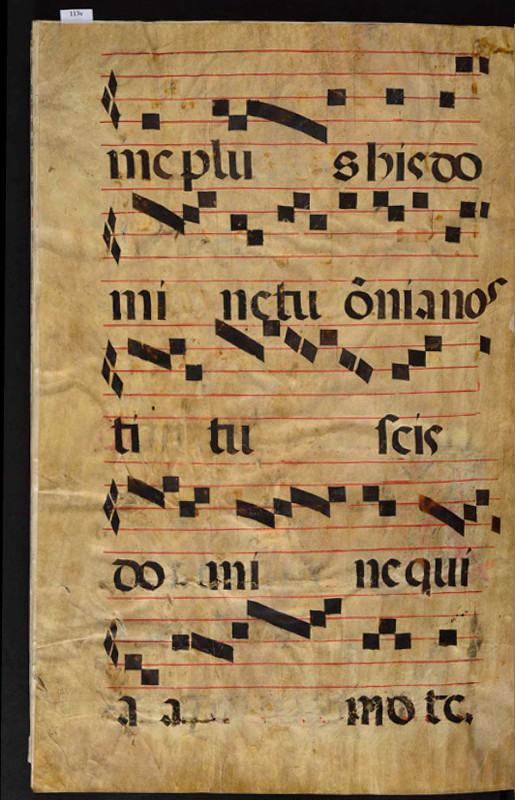 113v
me plu s his do
mi ne tu õnia nos
ti tu scis
do mi ne qui
a a mo te.